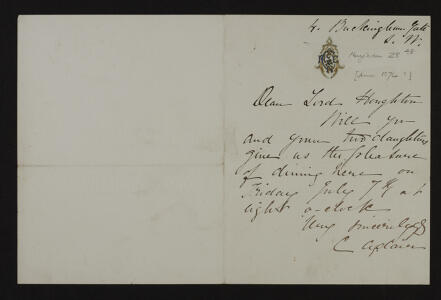 4. Buckingham Gate
S. W.
Dear Lord Houghton
Will you
and your two daughters
give us the pleasure
of dining here on
Friday July 7th at
eight o-clock
Very sincerely
C